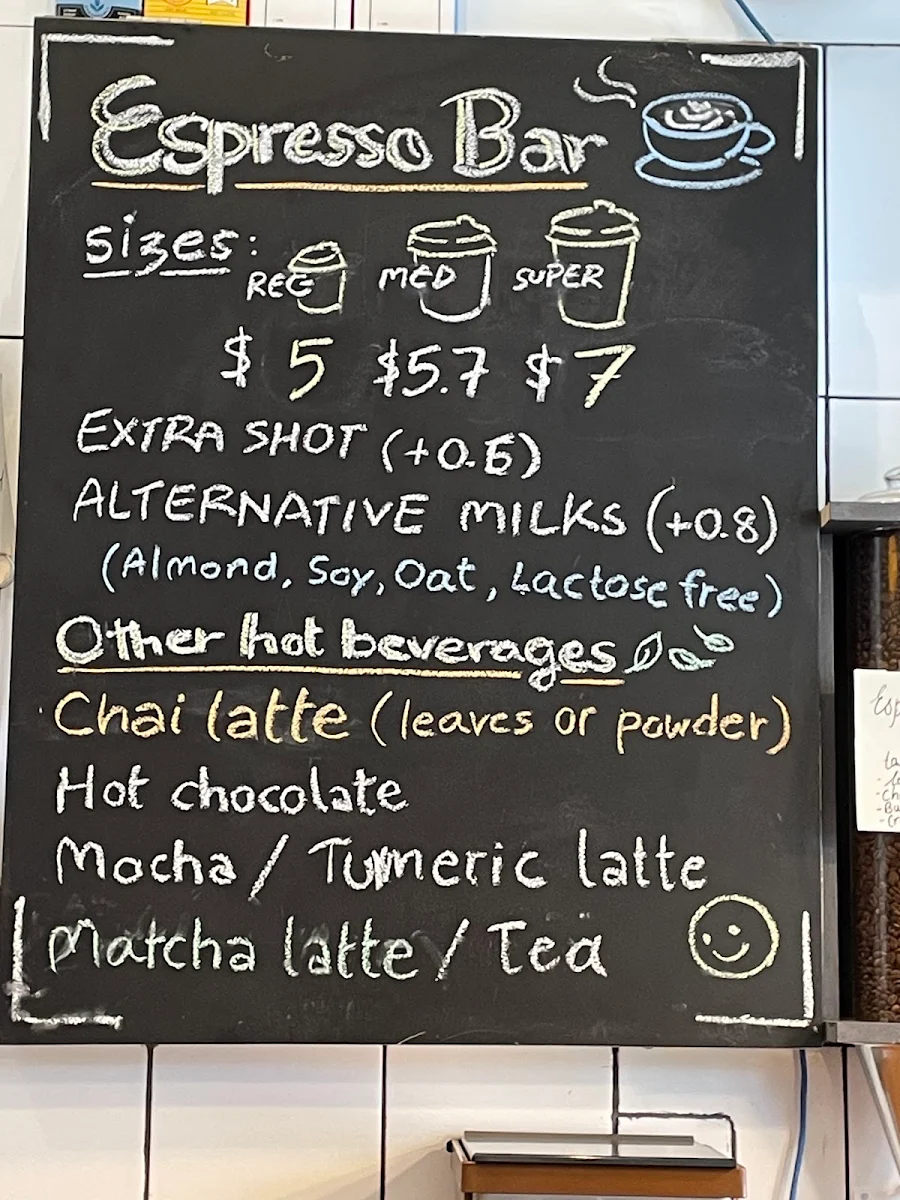 Espresso Bar
sizes:
REG MED SUPER
$ 5 $5.7 $7
EXTRA SHOT (+0.6)
ALTERNATIVE MILKS (+0.8)
(Almond, Soy, Oat, Lactose free)
Other hot beverages
Chai latte (leaves or powder)
Hot chocolate
Mocha / Tumeric latte
Matcha latte / Tea